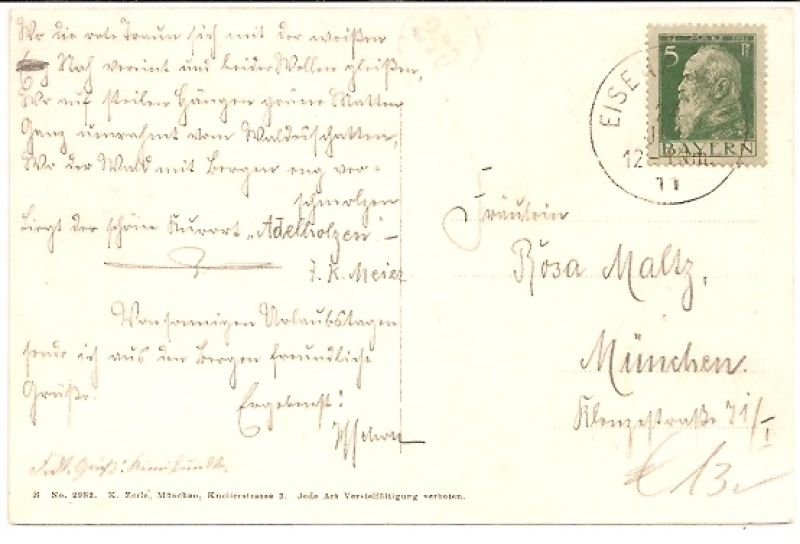 Wo die rote Traun sich mit der weißen
Nach vereint und beider Wellen gleißen,
Wo auf steilen Hängen grüne Matten
Ganz umrahmt vom Waldesschatten,
Wo der Wald mit Bergen eng ver-
schmolzen
Liegt der schöne Kurort „Adelholzen" –
J. K. Meier
Von sonnigen Urlaubstagen
sende ich aus den Bergen freundliche
Grüße.
Ergebenst!
Frdl. Grüße!
B No. 2982. K. Zerle, München, Knöbelstrasse 2. Jede Art Vervielfältigung verboten.
5 Pf
BAYERN
EISEN
12-1 NM.
11
Fräulein
Rosa Maltz,
München.
Klenzestraße 71/I
€ 13,-